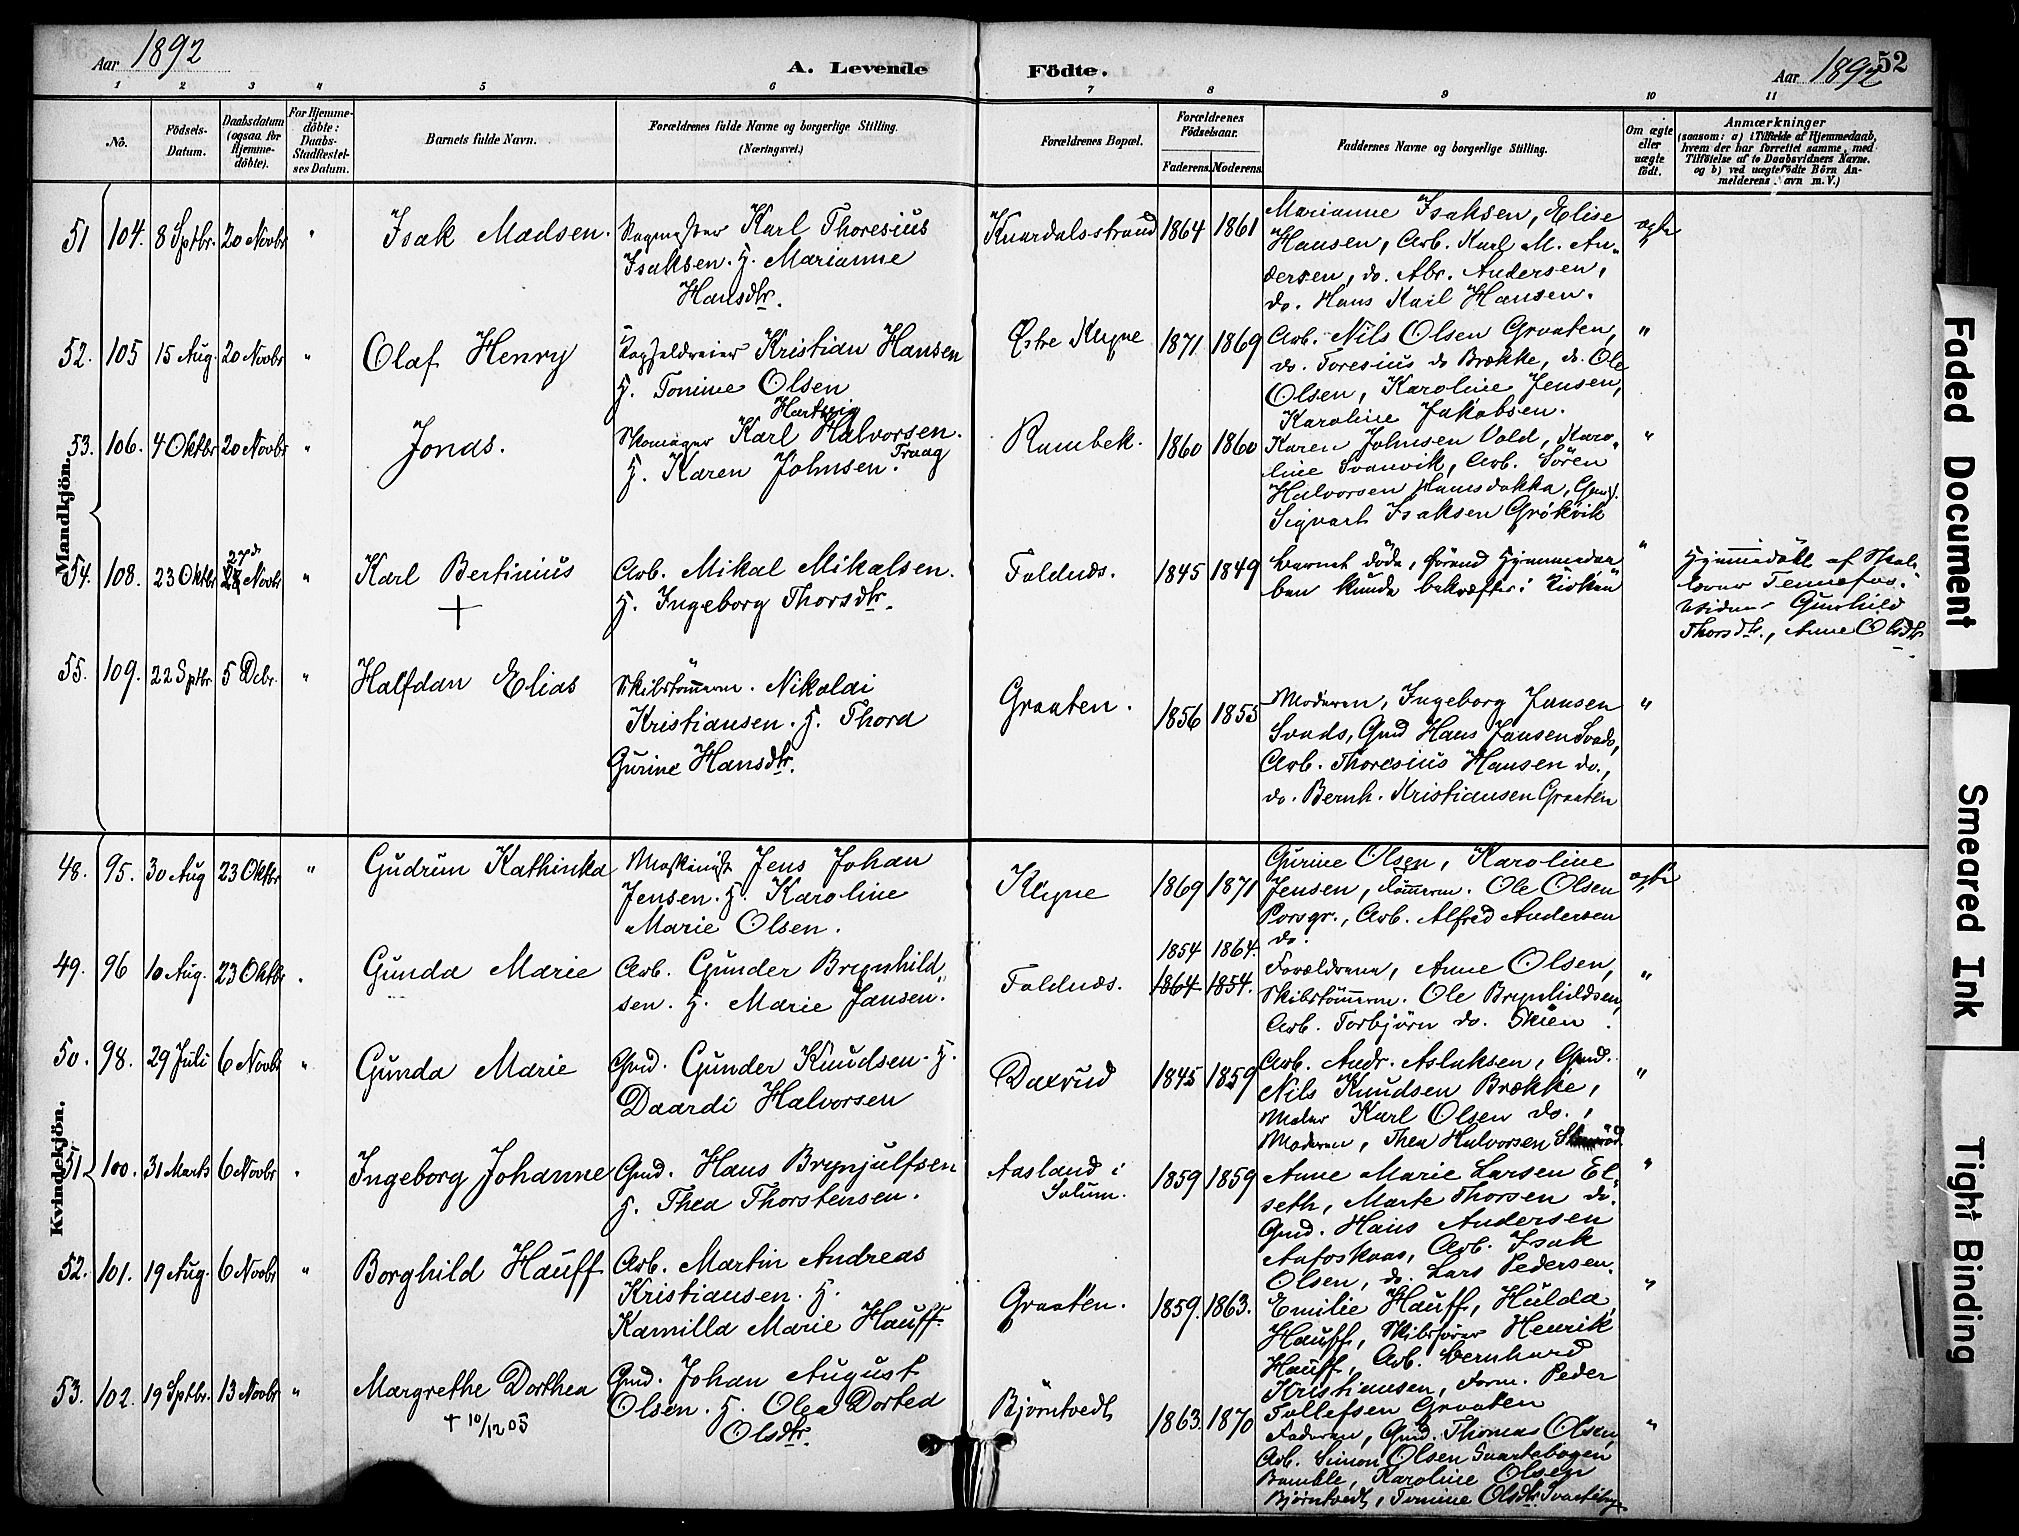 Aar 1892
A. Levende
Födte.
Aar 1892
52
1 2 3 4 5 6 7 8 9 10 11
No.
Födsels-Datum.
Daabsdatum (ogsaa for Hjemme-döbte).
For Hjemme-döbte: Daabs-Stadfæstel-ses Datum.
Barnets fulde Navn.
Forældrenes fulde Navne og borgerlige Stilling.
(Næringsvei.)
Forældrenes Bopæl.
Forældrenes Födselsaar.
Faderens. Moderens.
Faddernes Navne og borgerlige Stilling.
Om ægte eller uægte födt.
Anmærkninger
(saasom: a) i Tilfælde af Hjemmedaab,
hvem der har forrettet samme, med
Tilföielse af to Daabsvidners Navne.
og b) ved uægtefödte Börn An-
melderens Navn m. V.)
Mandkjön.
51 104. 8 Sptbr. 20 Novbr " Isak Madsen. Karl Thoresius
Isaksen. H. Marianne
Hansdtr.
Knardalsstrand 1864 1861
Marianne Isaksen, Elise
Hansen, Arb. Karl M. An-
dersen, do. Abr. Andersen,
do. Hans Karl Hansen.
ægte
52. 105 15 Aug. 20 Novbr " Olaf Henry Kristian Hansen
H. Tonine Olsen
Østre Klyve 1871 1869
Arb. Nils Olsen Graaten,
do. Toresius do Brække, do. Ole
Olsen, Karoline Jensen,
Karoline Jakobsen.
"
53. 106. 4 Oktbr 20 Novbr " Jonas. Skomager Karl Hartvig Halvorsen.
H. Karen Johnsen. Traag
Rambek. 1860 1860
Karen Johnsen Vold, Karo-
line Svanvik, Arb. Sören
Halvorsen Hansdokka, Gmd.
Sigvart Isaksen Grökvik
"
54. 108. 23 Oktbr 27d. Novbr " Karl Bertinius
+
Arb. Mikal Mikalsen.
H. Ingeborg Thorsdtr.
Foldnæs. 1845 1849
Barnet döde, förend Hjemmedaa-
ben kunde bekræftes i Kirken
"
Hjemmedöbt af Skole-
lærer Tennefos.
Vidner Gunhild
Thorsdtr., Anne Olsdtr.
55. 109. 22 Sptbr 5 Dcbr. " Halfdan Elias
Skibstömmerm. Nikolai
Kristiansen. H. Thora
Gurine Hansdtr.
Graaten. 1856 1855
Moderen, Ingeborg Jansen
Svads, Gmd Hans Jansen Svads,
Arb. Thoresius Hansen do.,
do. Bernh. Kristiansen Graaten
"
Kvindekjön.
48. 95. 30 Aug 23 Oktbr " Gudrun Kathinka
Maskinist Jens Johan
Jensen. H. Karoline
Marie Olsen.
Klyve 1869 1871
Gurine Olsen, Karoline
Jensen, Tömmerm. Ole Olsen
Porsgr., Arb. Alfred Andersen
do.
ægte
49. 96 10 Aug. 23 Oktbr " Gunda Marie
Arb. Gunder Brynhild-
sen. H. Marie Jansen.
Foldnæs. 1854 1864.
1864 1854.
Forældrene, Anne Olsen,
Skibstömmerm. Ole Brynhildsen,
Arb. Torbjörn do. Skien.
"
50. 98. 29 Juli 6 Novbr " Gunda Marie
Gmd. Gunder Knudsen. H.
Daardi Halvorsen
Daxrud 1845 1859
Arb. Andr. Aslaksen, Gmd.
Nils Knudsen Brække,
Maler Karl Olsen do.,
Moderen, Thea Halvorsen
"
51 100. 31 Marts 6 Novbr " Ingeborg Johanne
Gmd. Hans Brynjulfsen
H. Thea Thorstensen.
Aasland i
Solum.
1859 1859
Anne Marie Larsen El-
seth, Marte Thorsen do.
Gmd. Hans Andersen
Aafoskaas, Arb. Isak
Olsen, do. Lars Pedersen.
"
52. 101. 19 Aug. 6 Novbr " Borghild Hauff
Arb. Martin Andreas
Kristiansen. H.
Kamilla Marie Hauff
Graaten. 1859. 1863.
Emilie Hauff, Hulda
Hauff, Skibsförer Henrik
Hauff, Arb. Bernhard
Kristiansen, Form. Peder
Tollefsen Graaten
"
53. 102. 19 Sptbr. 13 Novbr " Margrethe Dorthea
+ 10/12 05
Gmd. Johan August
Olsen. H. Olea Dortea
Olsdtr.
Björntvedt 1863. 1870
Faderen, Gmd. Thomas Olsen,
Arb. Simon Olsen Svartebogen
Bamble, Karoline Olsen
Björntvedt, Tomine Olsdtr.
"
Faded Document
Smeared Ink
Tight Binding